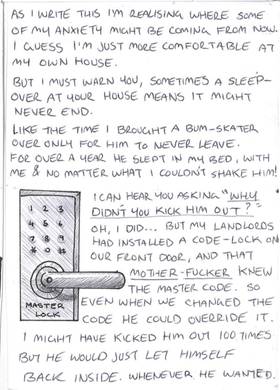 AS I WRITE THIS I'M REALISING WHERE SOME
OF MY ANXIETY MIGHT BE COMING FROM NOW.
I GUESS I'M JUST MORE COMFORTABLE AT
MY OWN HOUSE.
BUT I MUST WARN YOU, SOMETIMES A SLEEP-
OVER AT YOUR HOUSE MEANS IT MIGHT
NEVER END.
LIKE THE TIME I BROUGHT A BUM-SKATER
OVER ONLY FOR HIM TO NEVER LEAVE.
FOR OVER A YEAR HE SLEPT IN MY BED, WITH
ME & NO MATTER WHAT I COULDN'T SHAKE HIM!
I CAN HEAR YOU ASKING "WHY
DIDN'T YOU KICK HIM OUT?"
OH, I DID... BUT MY LANDLORDS
HAD INSTALLED A CODE-LOCK ON
OUR FRONT DOOR, AND THAT
MOTHER-FUCKER KNEW
THE MASTER CODE. SO
EVEN WHEN WE CHANGED THE
CODE HE COULD OVERRIDE IT.
I MIGHT HAVE KICKED HIM OUT 100 TIMES
BUT HE WOULD JUST LET HIMSELF
BACK INSIDE. WHENEVER HE WANTED.
1 2 3
4 5 6
7 8 9
MASTER
LOCK